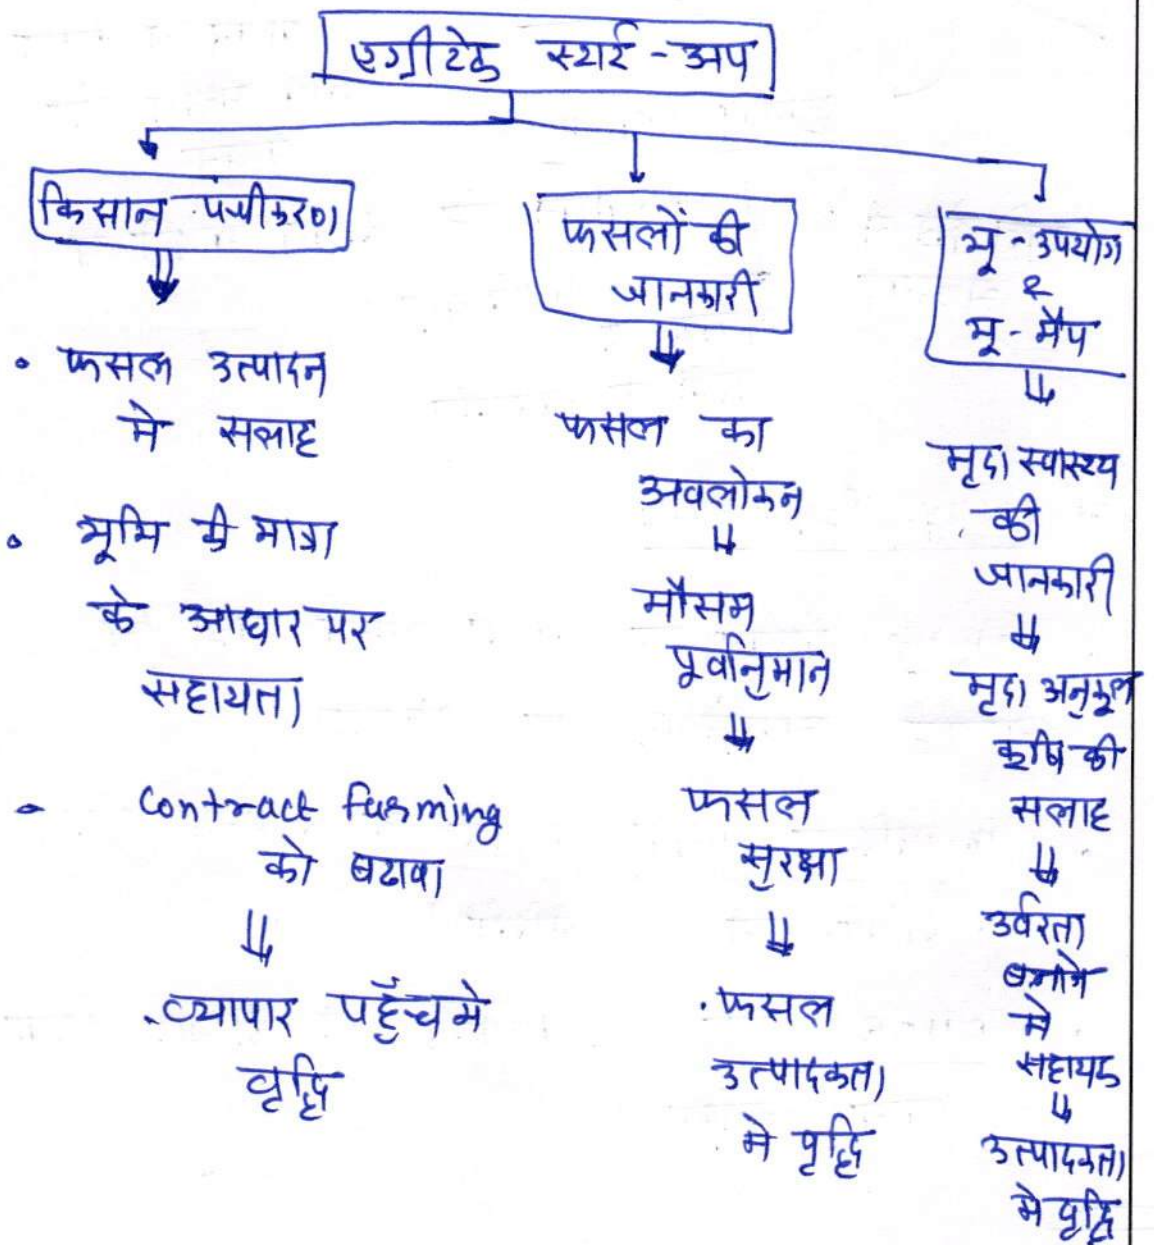 एग्रीटेक स्टार्ट-अप
किसान पंजीकरण
• फसल उत्पादन
मे सलाह
• भूमि की मात्रा
के आधार पर
सहायता
- Contract farming
को बढावा
⇓
. व्यापार पहुँच मे
वृद्धि
फसलों की
जानकारी
⇓
फसल का
अवलोकन
⇓
मौसम
पूर्वानुमान
⇓
फसल
सुरक्षा
⇓
. फसल
उत्पादकता
मे वृद्धि
भू-उपयोग
&
भू-मैप
⇓
मृदा स्वास्थ्य
की
जानकारी
⇓
मृदा अनुकूल
कृषि की
सलाह
⇓
उर्वरता
बनाने
मे
सहायक
⇓
उत्पादकता
मे वृद्धि